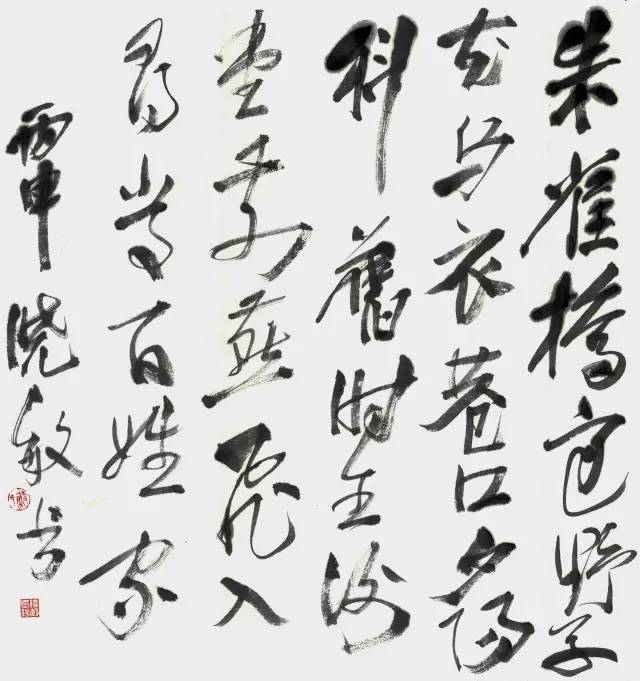 朱雀橋邊野草
花烏衣巷口夕陽
斜舊時王謝
堂前燕飛入
尋常百姓家
丙申曉敏書